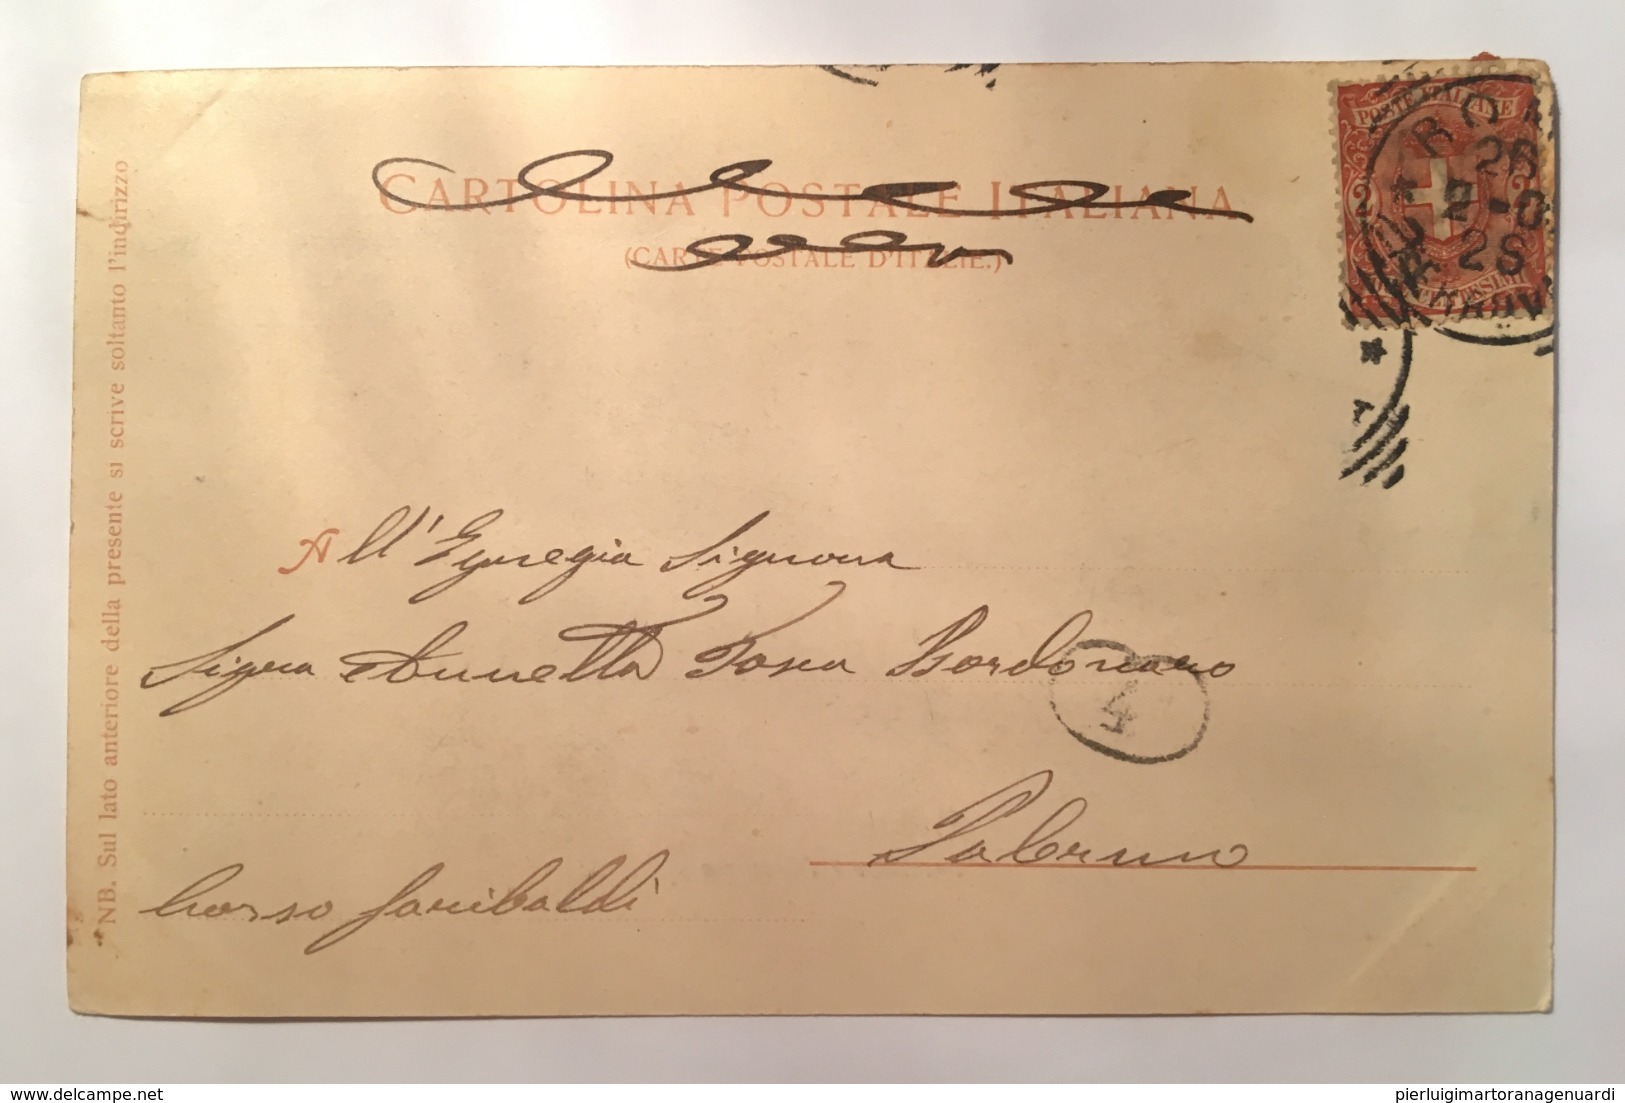 CARTOLINA POSTALE ITALIANA
(CARTE POSTALE D'ITALIE.)
POSTE ITALIANE
2 2
ROMA
26
2-0
2S
ARRIVI
NB. Sul lato anteriore della presente si scrive soltanto l'indirizzo
All'Egregia Signora
Sigra Annetta Tosca Bordonaro
4
Palermo
Corso Garibaldi
delcampe.net
pierluigimartoranagenuardi